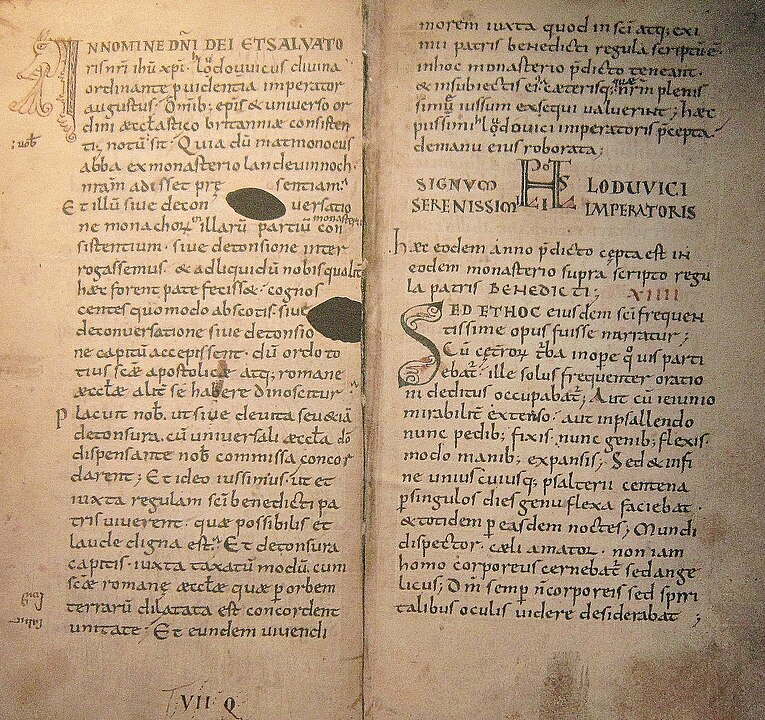 IN NOMINE DNI DEI ET SALVATO
ris nri ihu xpi. hlodovvicus divina
ordinante pvidentia imperator
augustus. Omib; epis & universo or
dini æcclastico britanniæ consisten
ti. notu sit. Quia du matmonocus
; vob
abba ex monasterio landevinnoch
nram adisset pre sentiam.
Et illu sive de con versatio
ne monachor illaru partiu con
monasterii
sistentium. sive detonsione inter
rogassemus. & ad liquidu nobis qualit
hæc forent patefecissæ. cognos
centes quomodo ab scotis. sive
de conversatione sive detonsio
ne capitu accepissent. du ordo to
tius scæ apostolicæ atq; romane
æcclæ alit se habere dinoscitur.
Placuit nob. ut sive de vita seu & iā
detonsura. cu universali æccla do
dispensante nob commissa concor
darent; Et ideo iussimus. ut et
iuxta regulam sci benedicti pa
tris viverent. quæ possibilis et
laude digna est; Et detonsura
capitis. iuxta taxatu modu. cum
scæ romane æcclæ quæ p orbem
terraru dilatata est concordent
unitate. Et eundem vivendi
VII Q
morem iuxta quod in sci atq; exi
mii patris benedicti regula scriptu ē.
in hoc monasterio pdicto teneant.
& in subiectis ei cæterisq; nrm plenis
simu iussum exsequi valuerint; hæc
piissimi hlodovici imperatoris pcepta.
de manu eius roborata;
SIGNVM LODUVICI
SERENISSIMI IMPERATORIS
hæc eodem anno pdicto cepta est in
eodem monasterio supra scripto regu
la patris BENEDICTI; XIIII
SED ET HOC eiusdem sci frequen
tissime opus fuisse narratur;
Cu ceteror tba inope q vis parti
ebat. ille solus frequenter oratio
ni deditus occupabat; Aut cu ieiunio
mirabilit extenso. aut in psallendo
nunc pedib; fixis. nunc genib; flexis.
modo manib; expansis; Sed & infi
ne uniuscuiusq; psalterii centena
p singulos dies genu flexa faciebat.
& totidem p easdem noctes; Mundi
dispector. cæli amator. non iam
homo corporeus cernebat sed ange
licus; Dm semp n corporeis sed spiri
talibus oculis videre desiderabat;